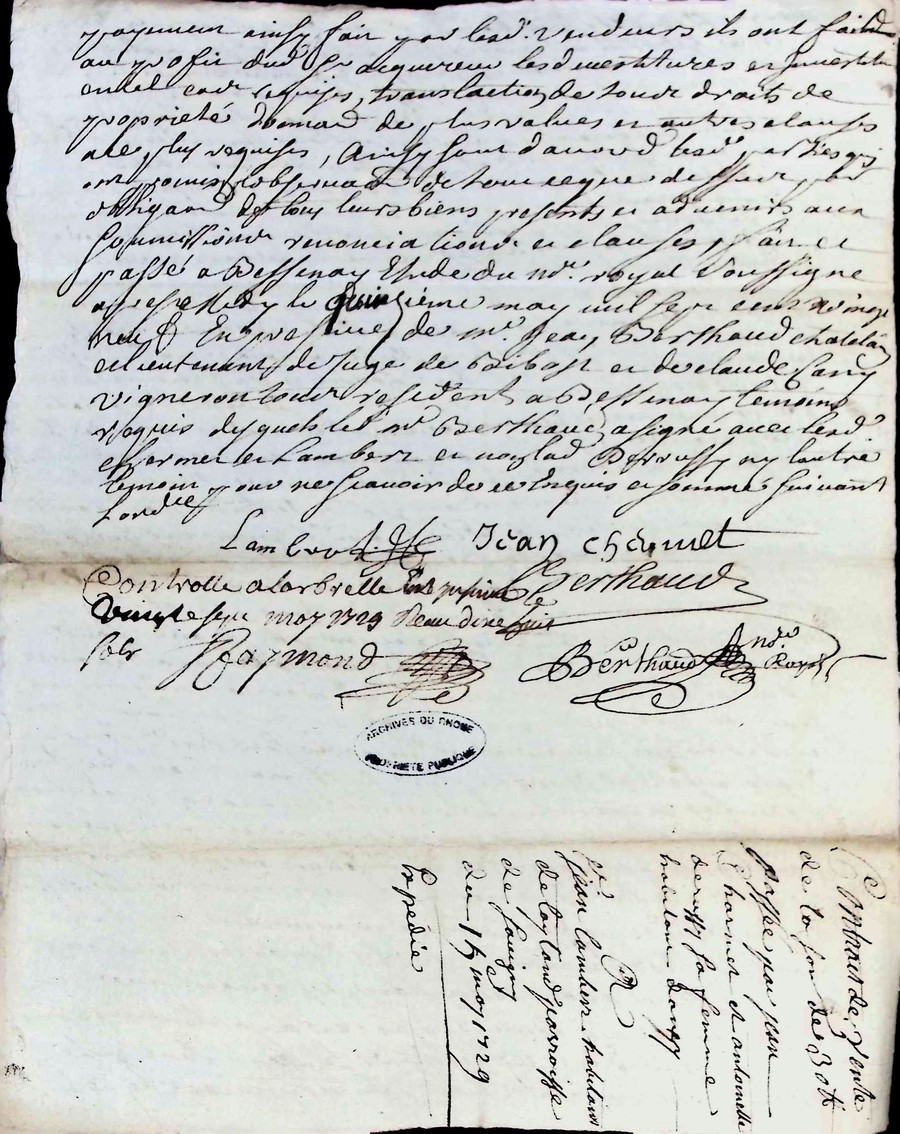 payement ainsy fair par lesd. vendeurs ils ont fait
au profit dud sr acquereur les devestitures et investitu
en tel cas requises, translaction de tour droits de
proprieté demand de plus values et autres clauses
a ce plus requises, Ainsy sont d'accord lesd. parties qui
ont promis observer de tour ce que dessus par
obligaon de tous leurs biens presents et advenirs aux
soumissions renonciations et clauses, fair et
passé a Bessenay Etude du nre. royal soussigne
apres midy le quinzieme may mil sept cens vingt
neuf En presence de mr. Jean Berthaud chatelain
et lieutenant de Juge de Bibost et de claude
vigneron tour resident a Bessenay temoins
requis desquels led mr Berthaud a signe avec lesd
chermet et Lambert et non lad Derussy ny l'autre
temoin pour ne scavoir de ce enquis et sommé suivant
lordce
Lambert Jean chermet
Controlle a larbrelle Berthaud
Vingt sept may 1729 Reçu
sols Raymond Berthaud Nore Royal
ARCHIVES DU RHONE
PROPRIETE PUBLIQUE
Contract de Vente
de la fon de 330 lt
passée par jean
Charmet et antoinette
derussy sa femme
habitans
A
sr jean lambert habitant
de tayland parroisse
de souigny
du 15 may 1729
Expedié